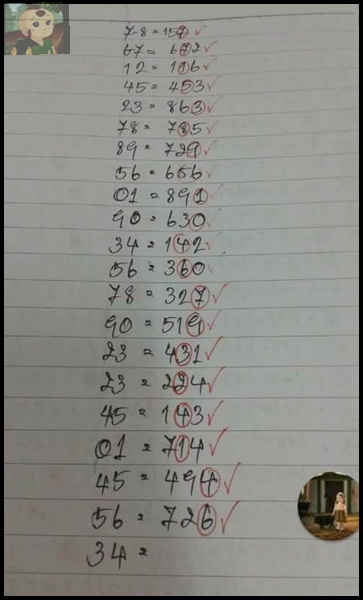 7-8 = 157 ✓
67 = 672 ✓
12 = 116 ✓
45 = 453 ✓
23 = 863 ✓
78 = 785 ✓
89 = 729 ✓
56 = 656 ✓
01 = 891 ✓
90 = 630 ✓
34 = 142 ✓
56 = 360 ✓
78 = 327 ✓
90 = 519 ✓
23 = 431 ✓
23 = 224 ✓
45 = 143 ✓
01 = 714 ✓
45 = 494 ✓
56 = 726 ✓
34 =